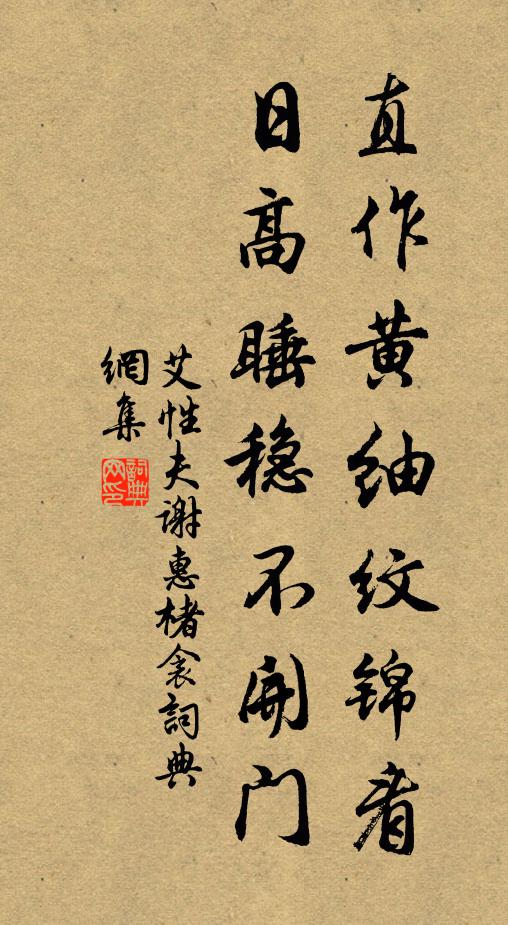 直作黄紬纹锦看
日高睡稳不開门
艾性夫谢惠楮衾詞典
網集
詞典网印